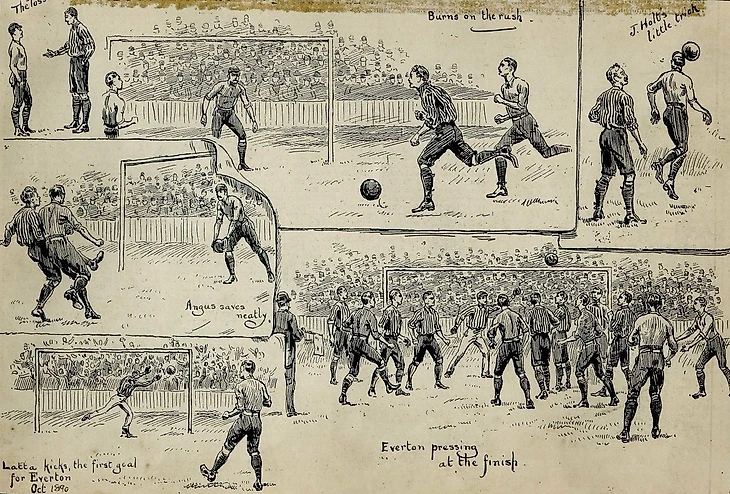 The loss
Burns on the rush.
J. Holt's
little trick
Angus saves
neatly.
Latta kicks, the first goal
for Everton
Oct 1890
Everton pressing
at the finish.